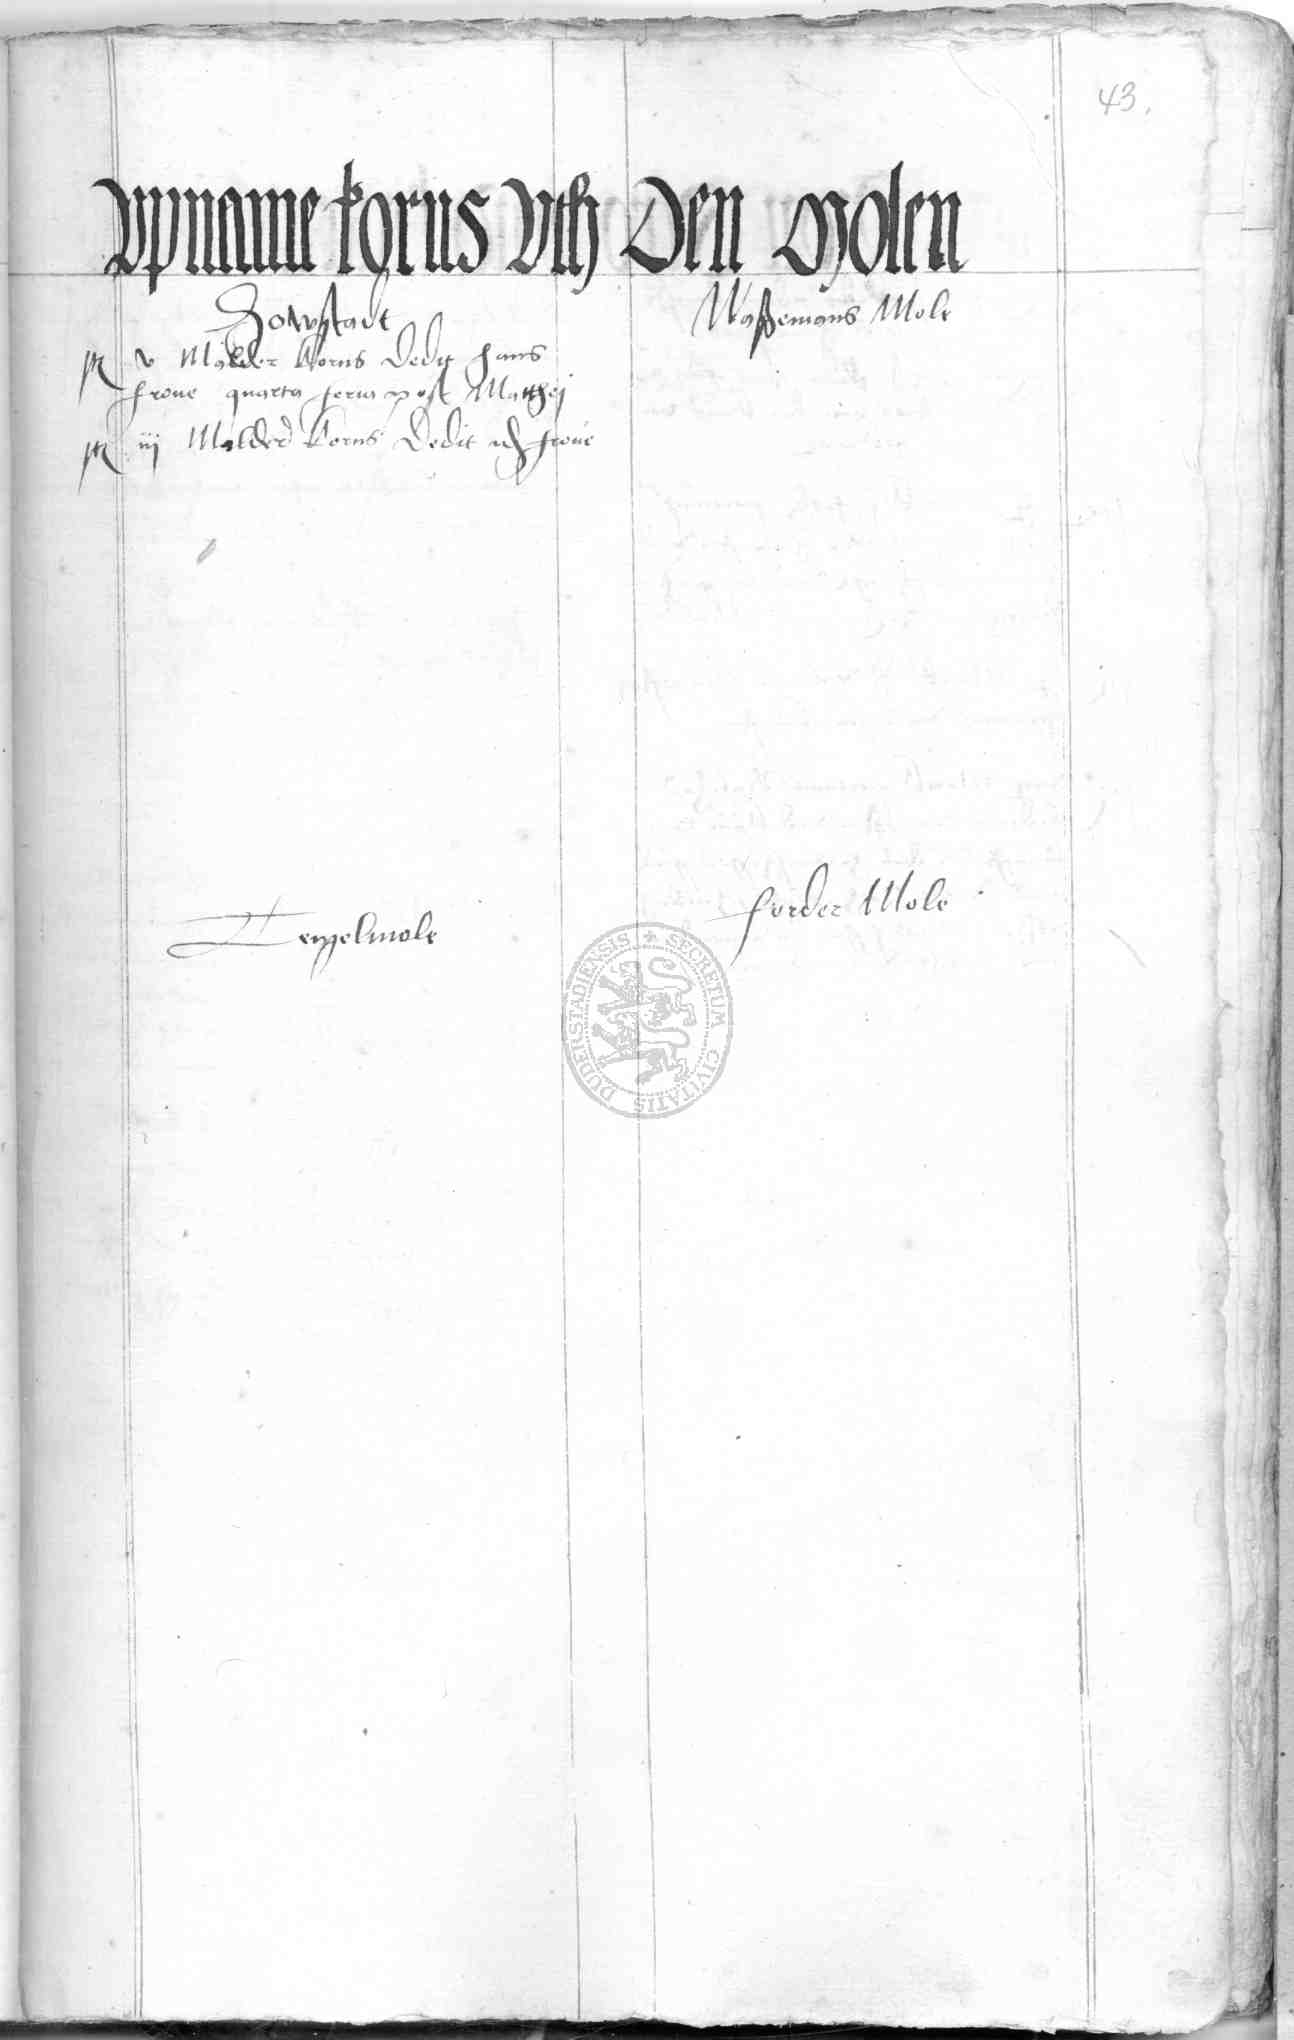 43.
Vpname korns vth Den Molen
Howstadt
v Malder korns Dedit hans
frone quarta feria post Matthej
iij Malder korns Dedit id frone
Waßemans Mole
Tegelmole
forder Mole
SECRETUM CIVITATIS DUDERSTADIENSIS